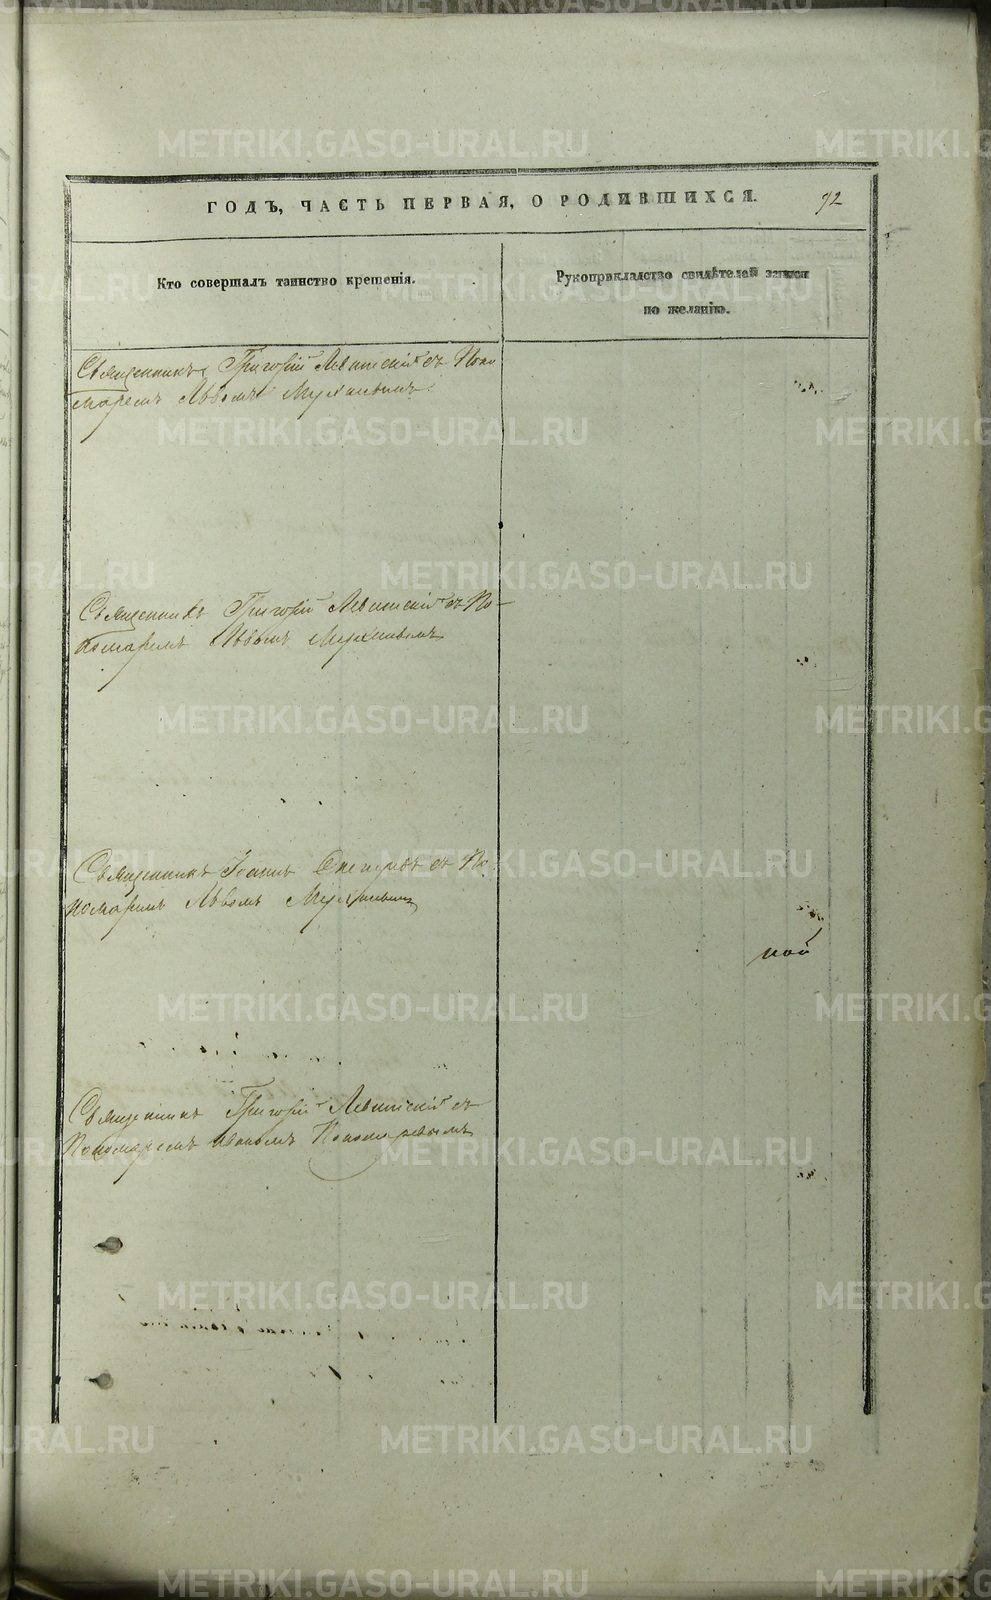 METRIKI.GASO-URAL.RU
ГОДЪ, ЧАСТЬ ПЕРВАЯ, О РОДИВШИХСЯ.
92
Кто совершалъ таинство крещенія.
Рукоприкладство свидѣтелей записи
по желанію.
Священникъ Григорій Левитскій съ Поно
маремъ Львомъ
Священникъ Григорій Левитскій съ По-
номаремъ Львомъ
Священникъ Іоаннъ съ По
номаремъ Львомъ
ной
Священникъ Григорій Левитскій съ
Пономаремъ Иваномъ Пономаревымъ